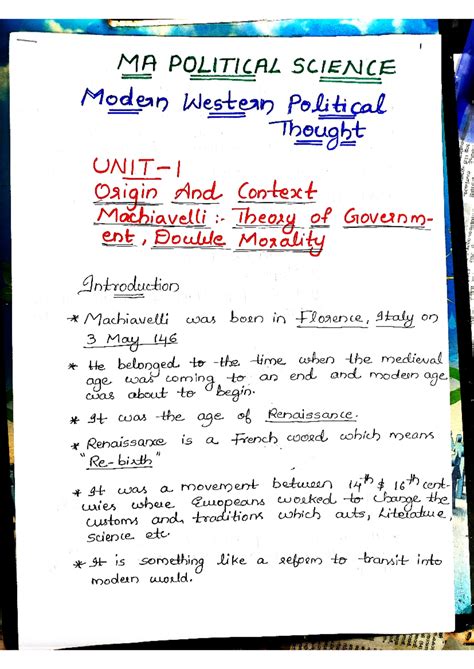 1
MA POLITICAL SCIENCE
Modern Western Political
Thought
UNIT-1
Origin And Context
Machiavelli :- Theory of Governm-
ent, Double Morality
Introduction
* Machiavelli was born in Florence, Italy on
3 May 146
* He belonged to the time when the medieval
age was coming to an end and modern age
was about to begin.
* It was the age of Renaissance.
* Renaissance is a French word which means
"Re-birth"
* It was a movement between 14th & 16th cent-
uries where Europeans worked to change the
customs and traditions which arts, Literature,
science etc
* It is something like a reform to transit into
modern world.